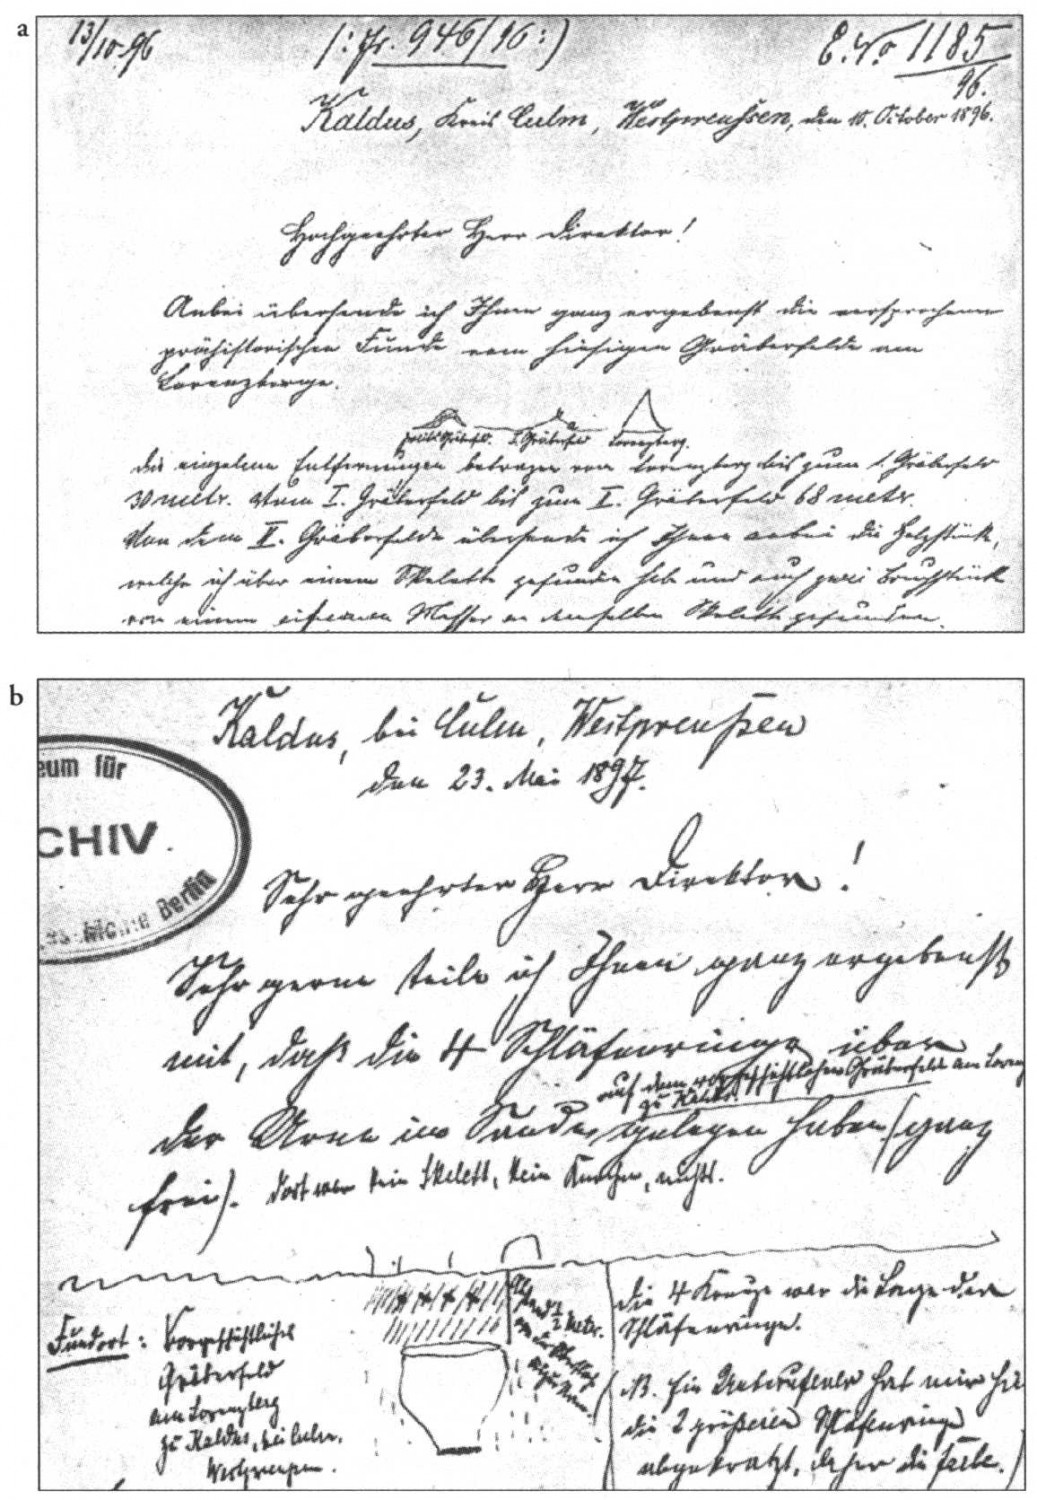 a
13/10.96 (: Fr. 946/96 :) E. No 1185
96.
Kaldus, Kreis Culm, Westpreussen, den 10. October 1896.
Hochgeehrter Herr Direktor!
Anbei übersende ich Ihnen ganz ergebenst die versprochenen
prähistorischen Funde vom hiesigen Gräberfelde am
Lorenzberge.
I. Gräberfeld Lorenzberg.
Die einzelnen Entfernungen betragen vom Lorenzberg bis zum I. Gräberfeld
30 metr. Vom I. Gräberfeld bis zum II. Gräberfeld 68 metr.
Von dem II. Gräberfelde übersende ich Ihnen anbei die Holzstücke,
welche ich über einem Skelette gefunden hab und auch zwei Bruchstücke
von einem eisernen Messer an demselben Skelett gefunden.
b
Kaldus, bei Culm, Westpreußen
den 23. Mai 1897.
eum für
CHIV.
Berlin
Sehr geehrter Herr Direktor!
Sehr gerne teile ich Ihnen ganz ergebenst
mit, daß die 4 Schläfenringe über
auf dem vorgeschichtlichen Gräberfelde am Loren
zu Kaldus
der Urne im Sande gelegen haben (ganz
frei). Dort war kein Skelett, kein Knochen, nichts.
Fundort: Vorgeschichtliches
Gräberfeld
am Lorenzberg
zu Kaldus, bei Culm,
Westpreußen.
1/2 Meter
Die 4 Kreuze war die Lage der
Schläfenringe.
(NB. Ein Unberufener hat mir
die 2 größeren Schläfenringe
abgekratzt, daher die Farbe.)